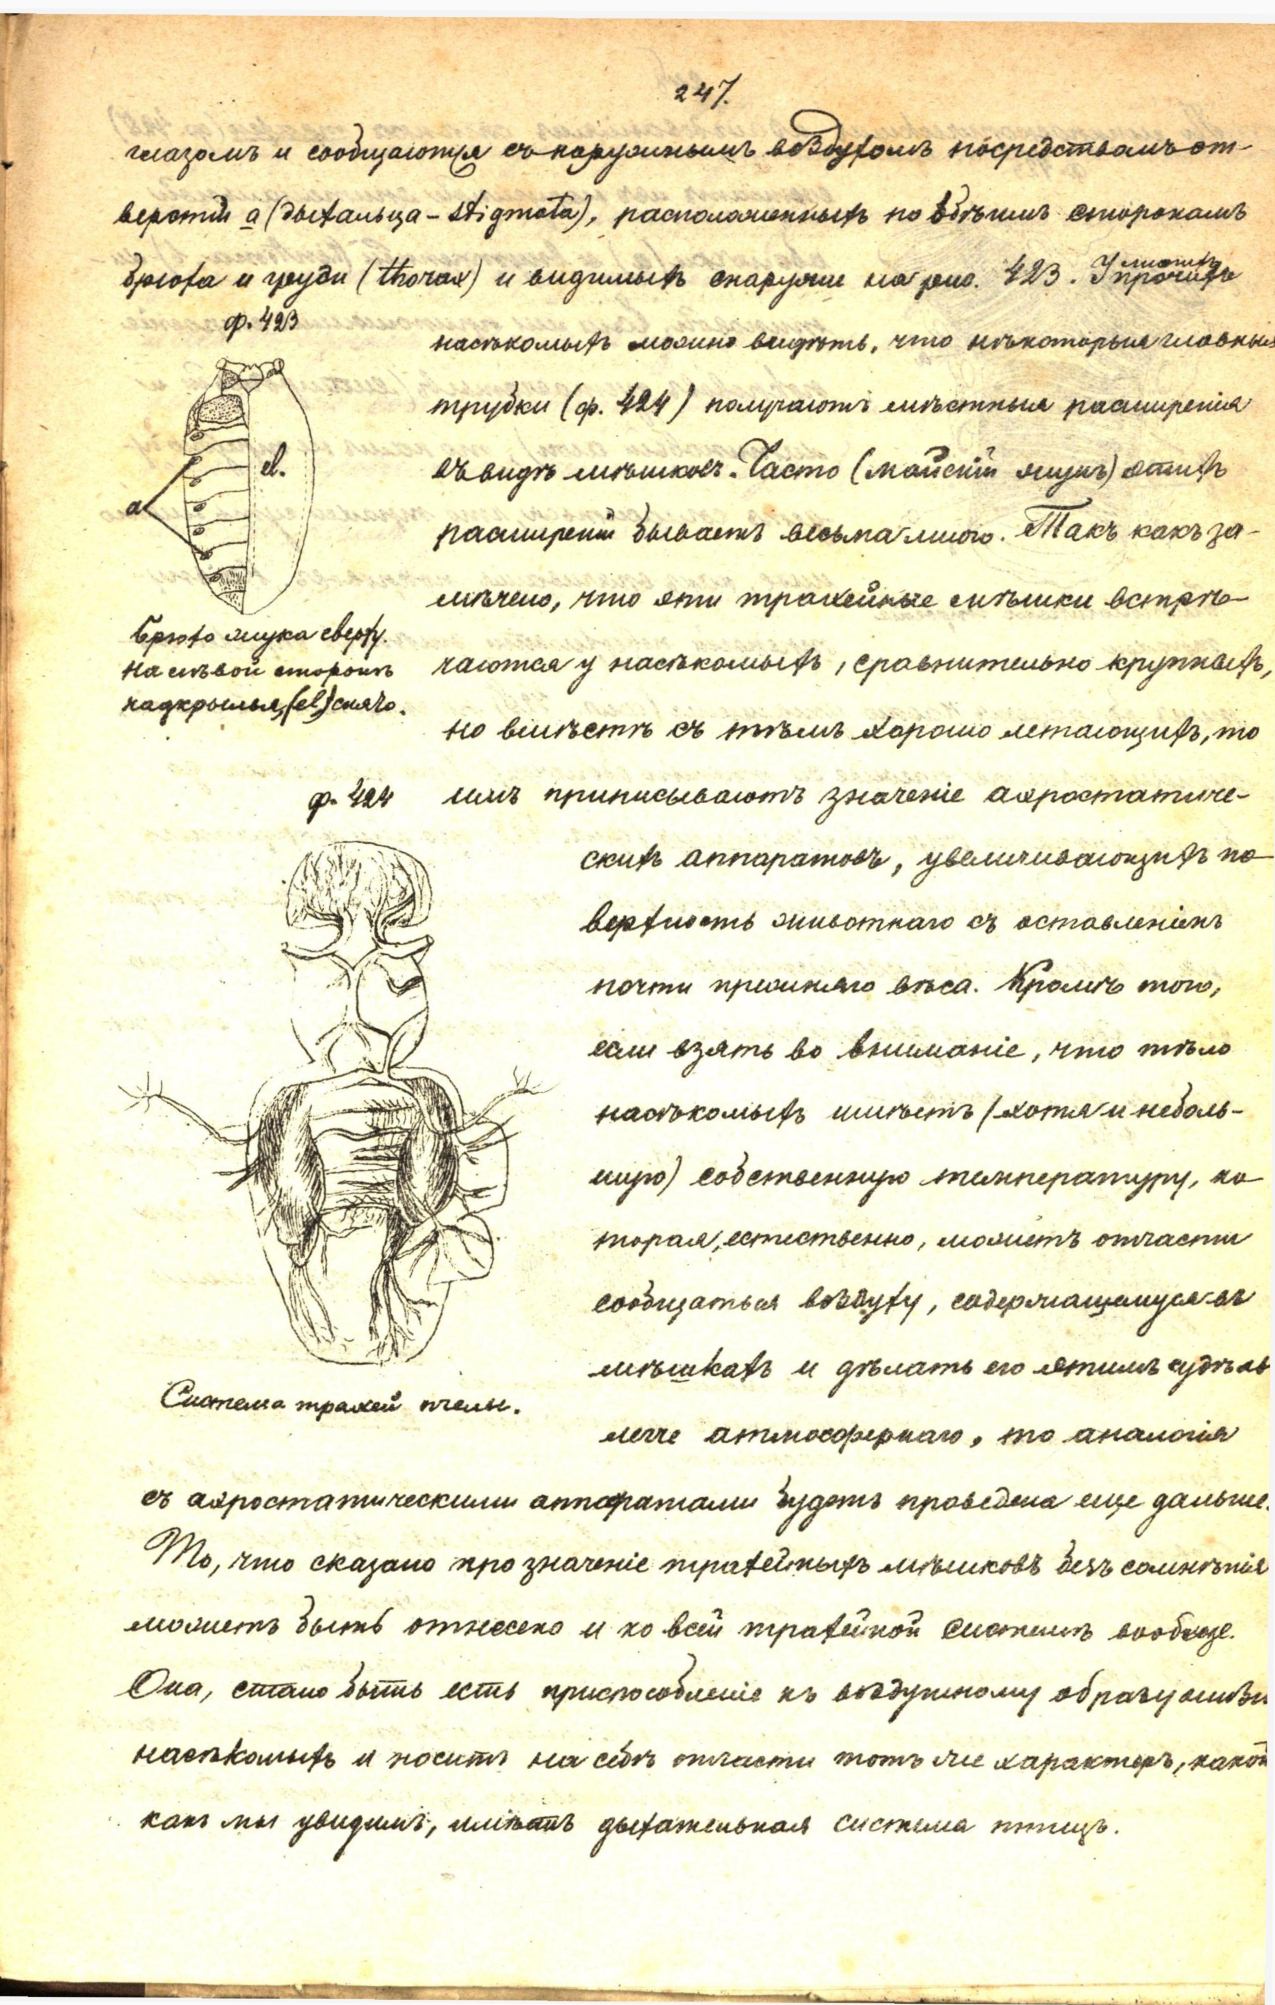 247.
глазомъ и сообщаются съ наружнымъ воздухомъ посредствамъ от-
верстій а (дыхальца - stigmata), расположенныхъ по обѣимъ сторонамъ
брюха и груди (thorax) и видимыхъ снаружи на рис. 423. У многихъ
прочихъ
ф. 423
насѣкомыхъ можно видѣть, что нѣкоторыя главныя
трубки (ф. 424) получаютъ мѣстныя расширенія
el.
въ видѣ мѣшковъ. Часто (майскій жукъ) этихъ
a
расширеній бываетъ весьма много. Такъ какъ за-
мѣчено, что эти трахейные мѣшки встрѣ-
Брюхо жука сверху.
на лѣвой сторонѣ
надкрылья (el) снято.
чаются у насѣкомыхъ, сравнительно крупныхъ,
но вмѣстѣ съ тѣмъ хорошо летающихъ, то
ф. 424
имъ приписываютъ значеніе аэростатиче-
скихъ аппаратовъ, увеличивающихъ по-
верхность животнаго съ оставленіемъ
почти прежняго вѣса. Кромѣ того,
если взять во вниманіе, что тѣло
насѣкомыхъ имѣетъ (хотя и неболь-
шую) собственную температуру, ко-
торая, естественно, можетъ отчасти
сообщаться воздуху, содержащемуся въ
мѣшкахъ и дѣлать его этимъ
легче атмосфернаго, то аналогія
Система трахей пчелы.
съ аэростатическими аппаратами будетъ проведена еще дальше.
То, что сказано про значеніе трахейныхъ мѣшковъ безъ сомнѣнія
можетъ быть отнесено и ко всей трахейной системѣ вообще.
Она, стало быть есть приспособленіе къ воздушному образу жизни
насѣкомыхъ и носитъ на себѣ отчасти тотъ же характеръ, какой
какъ мы увидимъ, имѣетъ дыхательная система птицъ.